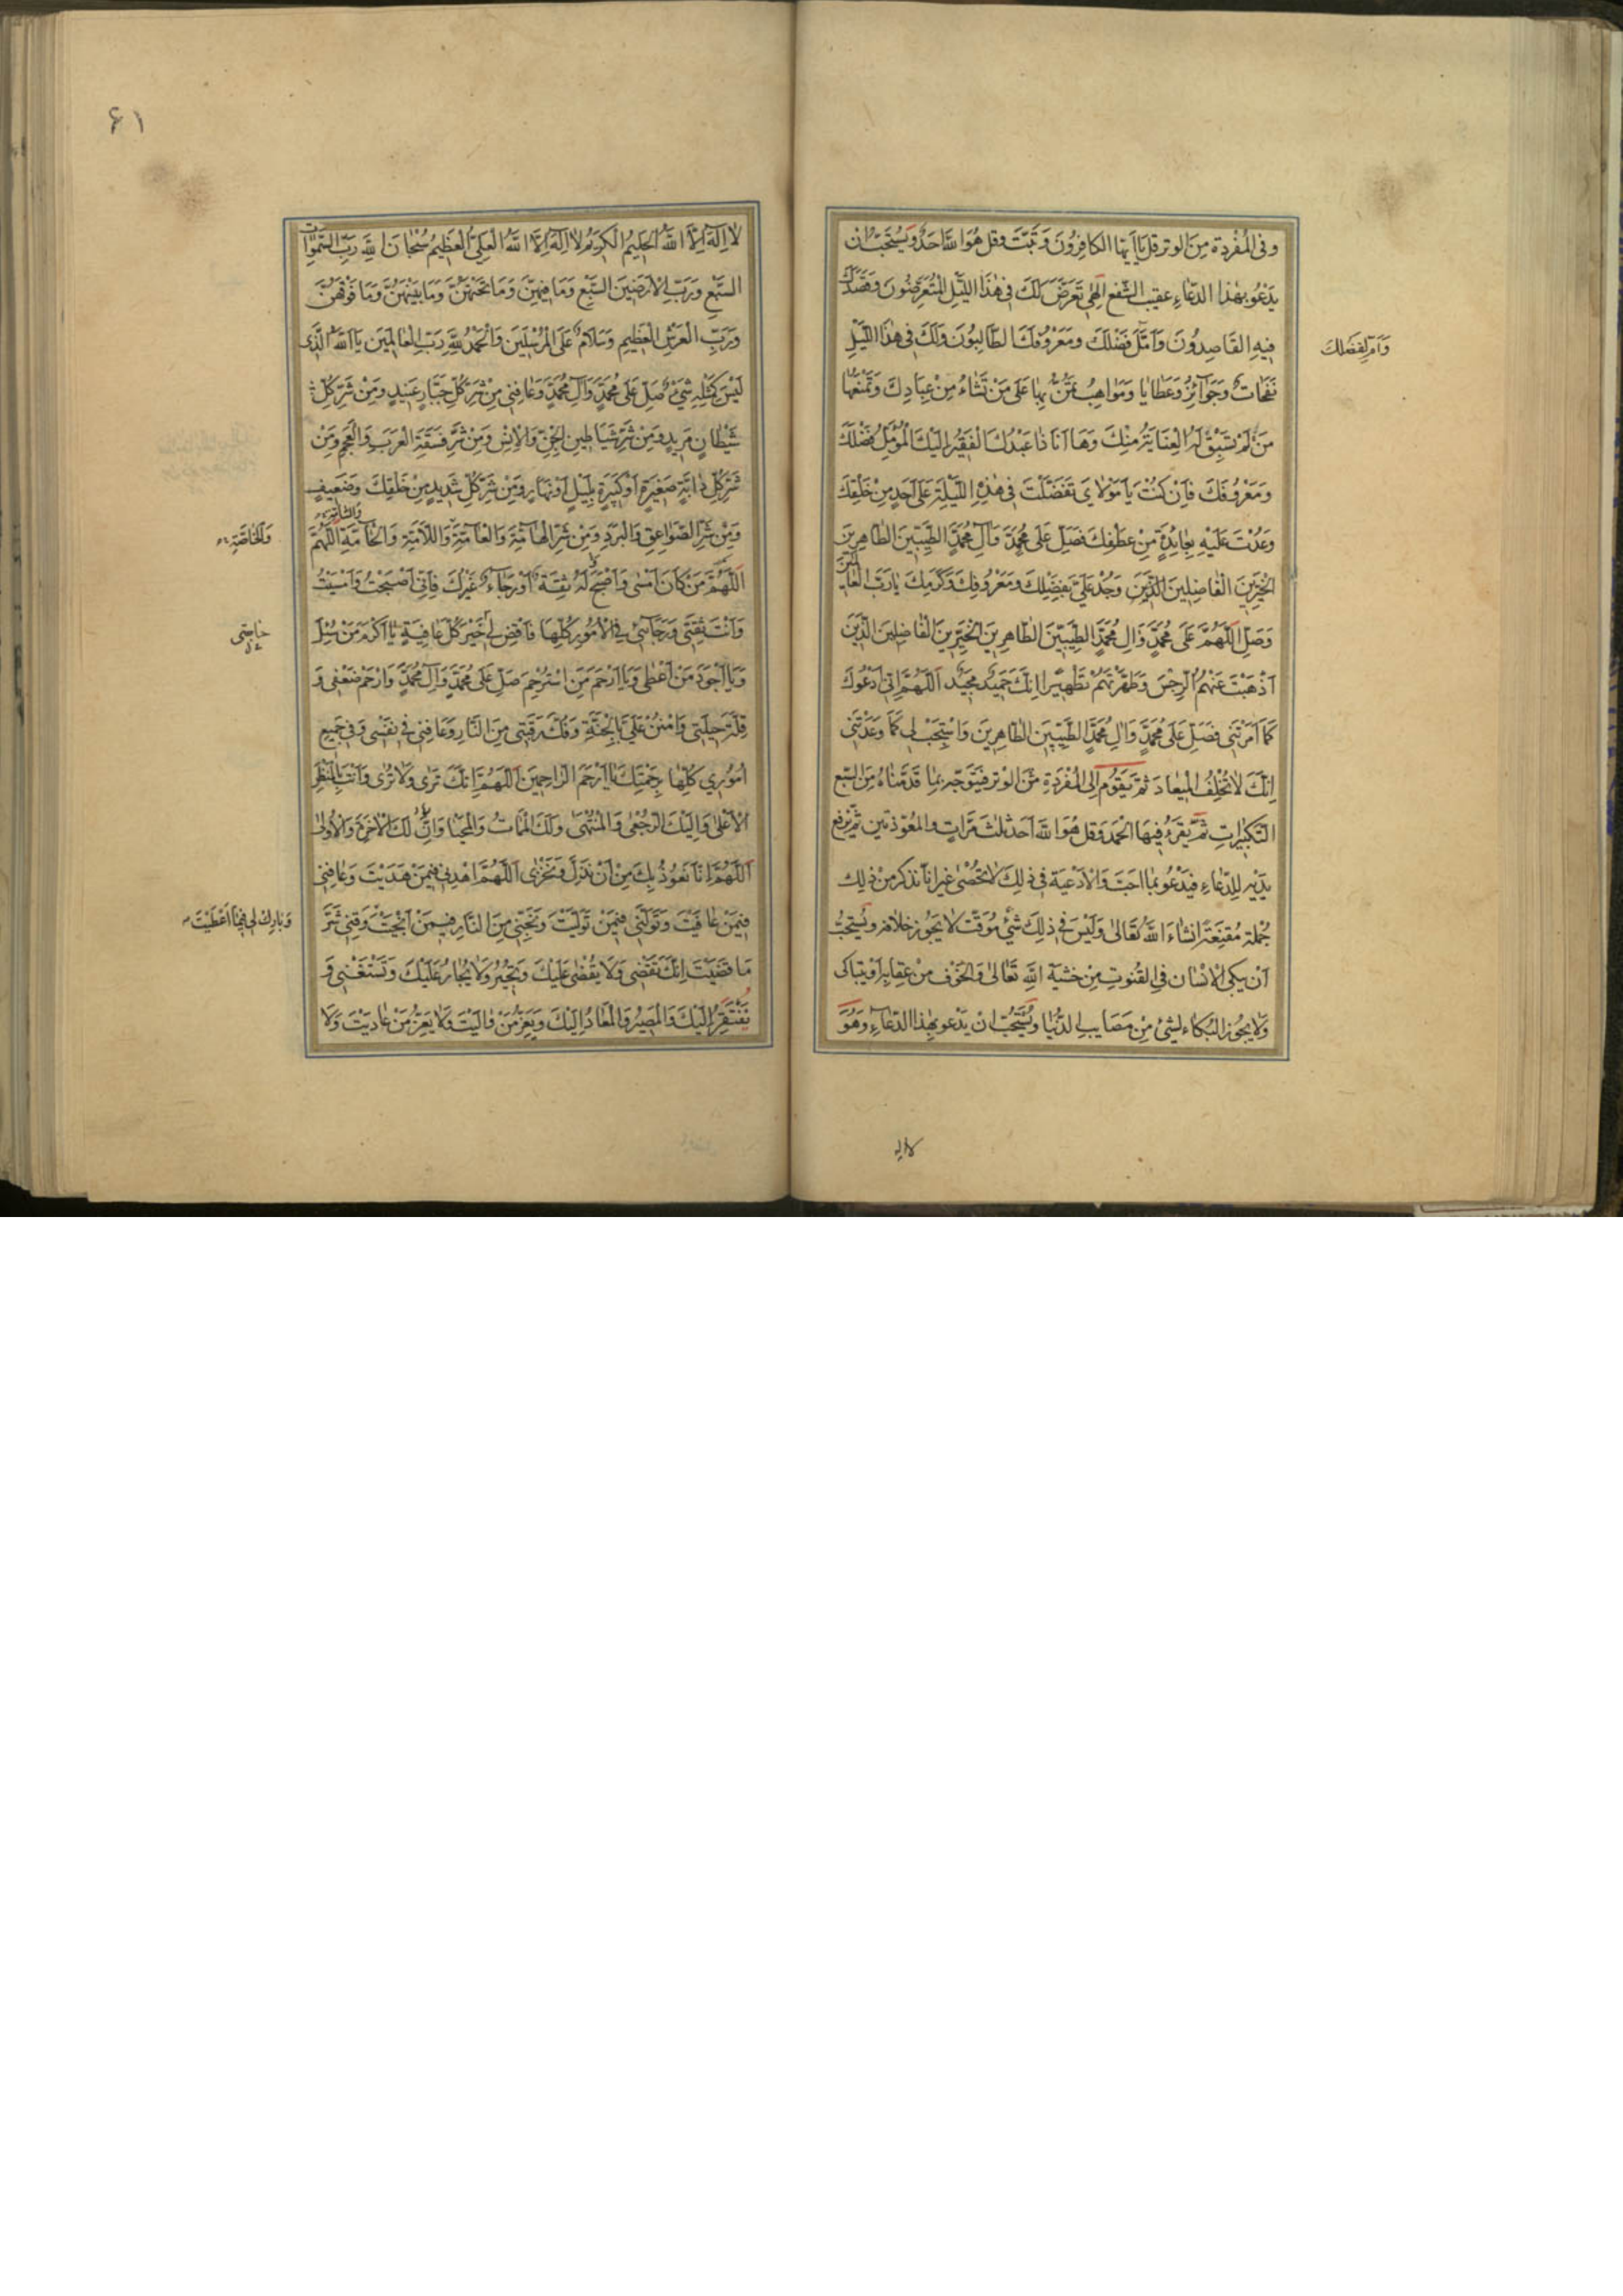 وفى المفردة من الوتر قل يا ايها الكافرون وتبت وقل هو الله احد ويستحب ان
يَدْعُو بهٰذا الدّعاءِ عقيب الشّفع اِلٰهى تَعَرَّضَ لَكَ فى هٰذا اللّيْلِ المُتَعَرِّضُونَ وَقَصَدَكَ
فيهِ القَاصِدُونَ وَاَمَّلَ فَضْلَكَ ومَعْرُوفَكَ الطّالِبُونَ وَلَكَ فى هٰذَا اللَّيْلِ
وَاَمّ لِفَضْلِكَ
نَفَحَاتٌ وَجَوَآئِزُ وَعَطايا وَمَوَاهِبُ تَمُنُّ بِهٰا عَلىٰ مَنْ تَشٰاءُ مِنْ عِبَادِكَ وَتَمْنَعُهٰا
مَنْ لَمْ تَسْبِقْ لَهُ الْعِنَايَةُ مِنْكَ وَهَا اَنَا ذَا عَبْدُكَ الْفَقيرُ اِلَيْكَ الْمُؤَمِّلُ فَضْلَكَ
وَمَعْرُوفَكَ فَاِنْ كُنْتَ يَا مَوْلايَ تَفَضَّلْتَ فى هٰذِهِ اللَّيْلَةِ عَلىٰ اَحَدٍ مِنْ خَلْقِكَ
وَعُدْتَ عَلَيْهِ بِعَايِدَةٍ مِنْ عَطْفِكَ فَصَلِّ عَلىٰ مُحَمَّدٍ وَآلِ مُحَمَّدٍ الطَّيِّبينَ الطّاهِرينَ
الْخَيِّرينَ الْفَاضِلينَ الَّذينَ وَجُدْ عَلَيَّ بِفَضْلِكَ وَمَعْرُوفِكَ وَكَرَمِكَ يَا رَبَّ الْعَالَمينَ
وَصَلِّ اللّٰهُمَّ عَلىٰ مُحَمَّدٍ وَالِ مُحَمَّدٍ الطَّيِّبينَ الطّاهِرينَ الْخَيِّرينَ الْفَاضِلينَ الَّذينَ
اَذْهَبْتَ عَنْهُمُ الرِّجْسَ وَطَهَّرْتَهُمْ تَطْهيرًا اِنَّكَ حَميدٌ مَجيدٌ اَللّٰهُمَّ اِنّى اَدْعُوكَ
كَمَا اَمَرْتَنى فَصَلِّ عَلىٰ مُحَمَّدٍ وَالِ مُحَمَّدٍ الطَّيِّبينَ الطّاهِرينَ وَاسْتَجِبْ لى كَمَا وَعَدْتَنى
اِنَّكَ لا تُخْلِفُ الْميعادَ ثمّ يَقُوم اِلى المُفْرَدَةِ مِنَ الوْترِ فيَتوَجّه بمٰا قدّمناهُ مِنَ السّبْع
التّكبيراتِ ثمّ يَقْرَءُ فيهَا الحْمَد وَقل هُوَ اللّٰه اَحد ثلٰث مَرّاتٍ والمعوّذتين ثمّ يَرفع
يَدَيْه للِدّعاءِ فيَدْعُو بمٰا احَبّ وَالادْعيَة فى ذٰلِكَ لا تُحْصٰى غير انّا نذكر من ذٰلِك
جُمْلة مُقنِعَة انشاءَ اللّٰه تَعَالىٰ وَلَيْسَ فى ذلِكَ شَئ مُوَقّت لا يَجُوز خلافه ويُستحبّ
اَنْ يبكى الانسٰان فى القنوتِ مِنْ خشيَة اللّٰه تَعَالىٰ وَالخوْف منْ عِقابِه اَوْ يتباكى
وَلا يجُوز البُكاء لشئ مِنْ مَصَايب الدّنيَا ويُسْتَحبّ ان يَدْعو بهٰذا الدّعآءِ وَهُوَ
لا اله
۶۱
لا اِلٰهَ اِلَّا اللّٰهُ الْحَليمُ الْكَريمُ لا اِلٰهَ اِلَّا اللّٰهُ الْعَلِىُّ الْعَظيمُ سُبْحَانَ اللّٰهِ رَبِّ السَّمٰوَاتِ
السَّبْعِ وَرَبِّ الْاَرَضينَ السَّبْعِ وَمَا فيهِنَّ وَمَا تَحْتَهُنَّ وَمَا بَيْنَهُنَّ وَمَا فَوْقَهُنَّ
وَرَبِّ الْعَرْشِ الْعَظيمِ وَسَلامٌ عَلَى الْمُرْسَلينَ وَالْحَمْدُ لِلّٰهِ رَبِّ الْعَالَمينَ يَا اَللّٰهُ الَّذى
لَيْسَ كَمِثْلِهِ شَيْءٌ صَلِّ عَلىٰ مُحَمَّدٍ وَآلِ مُحَمَّدٍ وَعَافِنى مِنْ شَرِّ كُلِّ جَبَّارٍ عَنيدٍ وَمِنْ شَرِّ كُلِّ
شَيْطَانٍ مَريدٍ وَمِنْ شَرِّ شَيَاطينِ الْجِنِّ وَالْاِنْسِ وَمِنْ شَرِّ فَسَقَةِ الْعَرَبِ وَالْعَجَمِ وَمِنْ
شَرِّ كُلِّ دَابَّةٍ صَغيرَةٍ اَوْ كَبيرَةٍ بِلَيْلٍ اَوْ نَهَارٍ وَمِنْ شَرِّ كُلِّ شَديدٍ مِنْ خَلْقِكَ وَضَعيفٍ
وَمِنْ شَرِّ الصَّوَاعِقِ وَالْبَرَدِ وَمِنْ شَرِّ الْهَامَّةِ وَالْعَامَّةِ وَاللَّامَّةِ وَالْخَآمَّةِ اللّٰهُمَّ
وَالْخَاصَّةِ
اَللّٰهُمَّ مَنْ كَانَ اَمْسٰى وَاَصْبَحَ لَهُ ثِقَةٌ اَوْ رَجَاءٌ غَيْرُكَ فَاِنّى اَصْبَحْتُ وَاَمْسَيْتُ
وَاَنْتَ ثِقَتى وَرَجَآئى فى الْاُمُورِ كُلِّهَا فَاقْضِ لى خَيْرَ كُلِّ عَافِيَةٍ يَا اَكْرَمَ مَنْ سُئِلَ
وَيَا اَجْوَدَ مَنْ اَعْطٰى وَيَا اَرْحَمَ مَنِ اسْتُرْحِمَ صَلِّ عَلىٰ مُحَمَّدٍ وَآلِ مُحَمَّدٍ وَارْحَمْ ضَعْفى وَ
قِلَّةَ حيلَتى وَامْنُنْ عَلَيَّ بِالْجَنَّةِ وَفُكَّ رَقَبَتى مِنَ النَّارِ وَعَافِنى فى نَفْسى وَفى جَميعِ
اُمُوري كُلِّهَا بِرَحْمَتِكَ يَا اَرْحَمَ الرّاحِمينَ اَللّٰهُمَّ اِنَّكَ تَرىٰ وَلا تُرىٰ وَاَنْتَ بِالْمَنْظَرِ
الْاَعْلىٰ وَاِلَيْكَ الرُّجْعىٰ وَالْمُنْتَهىٰ وَلَكَ الْمَمَاتُ وَالْمَحْيَا وَاِنَّ لَكَ الْاٰخِرَةَ وَالْاُولىٰ
اَللّٰهُمَّ اِنَّا نَعُوذُ بِكَ مِنْ اَنْ نَذِلَّ وَنَخْزىٰ اَللّٰهُمَّ اهْدِنى فيمَنْ هَدَيْتَ وَعَافِنى
فيمَنْ عَافَيْتَ وَتَوَلَّنى فيمَنْ تَوَلَّيْتَ وَنَجِّنى مِنَ النَّارِ فيمَنْ اَنْجَيْتَ وَقِنى شَرَّ
وَبَارِكْ لى فيمَا اَعْطَيْتَ
مَا قَضَيْتَ اِنَّكَ تَقْضى وَلا يُقْضٰى عَلَيْكَ وَتُجيرُ وَلا يُجَارُ عَلَيْكَ وَتَسْتَغْنى وَ
يُفْتَقَرُ اِلَيْكَ وَالْمَصيرُ وَالْمَعَادُ اِلَيْكَ وَيَعِزُّ مَنْ وَالَيْتَ وَلا يَعِزُّ مَنْ عَادَيْتَ وَلا